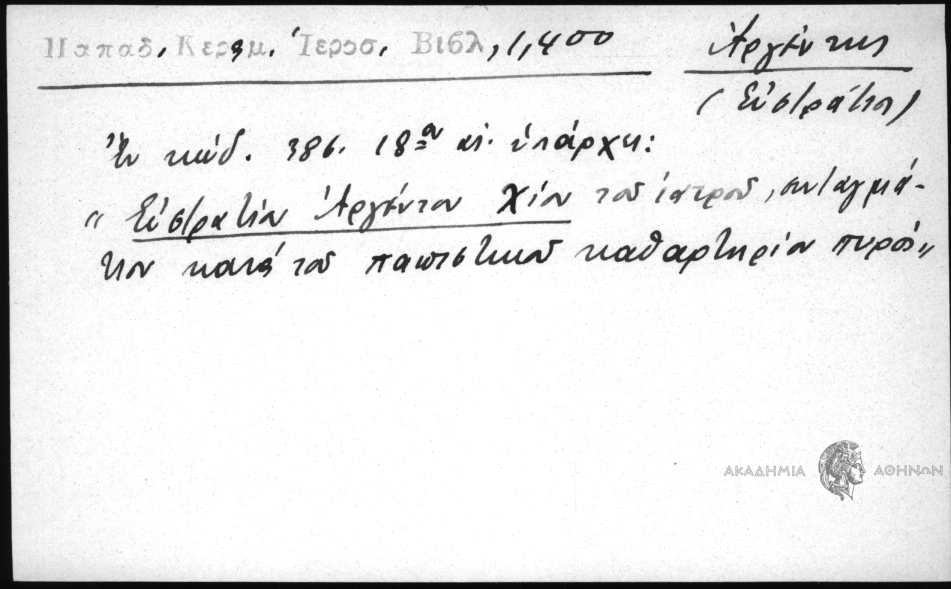 Παπαδ. Κεραμ. Ἱεροσ. Βιβλ, 1, 400
Ἀργέντης
(Εὐστράτιος)
Ἐν κώδ. 386. 18ου αἰ. ὑπάρχει:
"Εὐστρατίου Ἀργέντου Χίου τοῦ ἰατροῦ, συνταγμά-
τιον κατὰ τοῦ παπιστικοῦ καθαρτηρίου πυρός"
ΑΚΑΔΗΜΙΑ ΑΘΗΝΩΝ